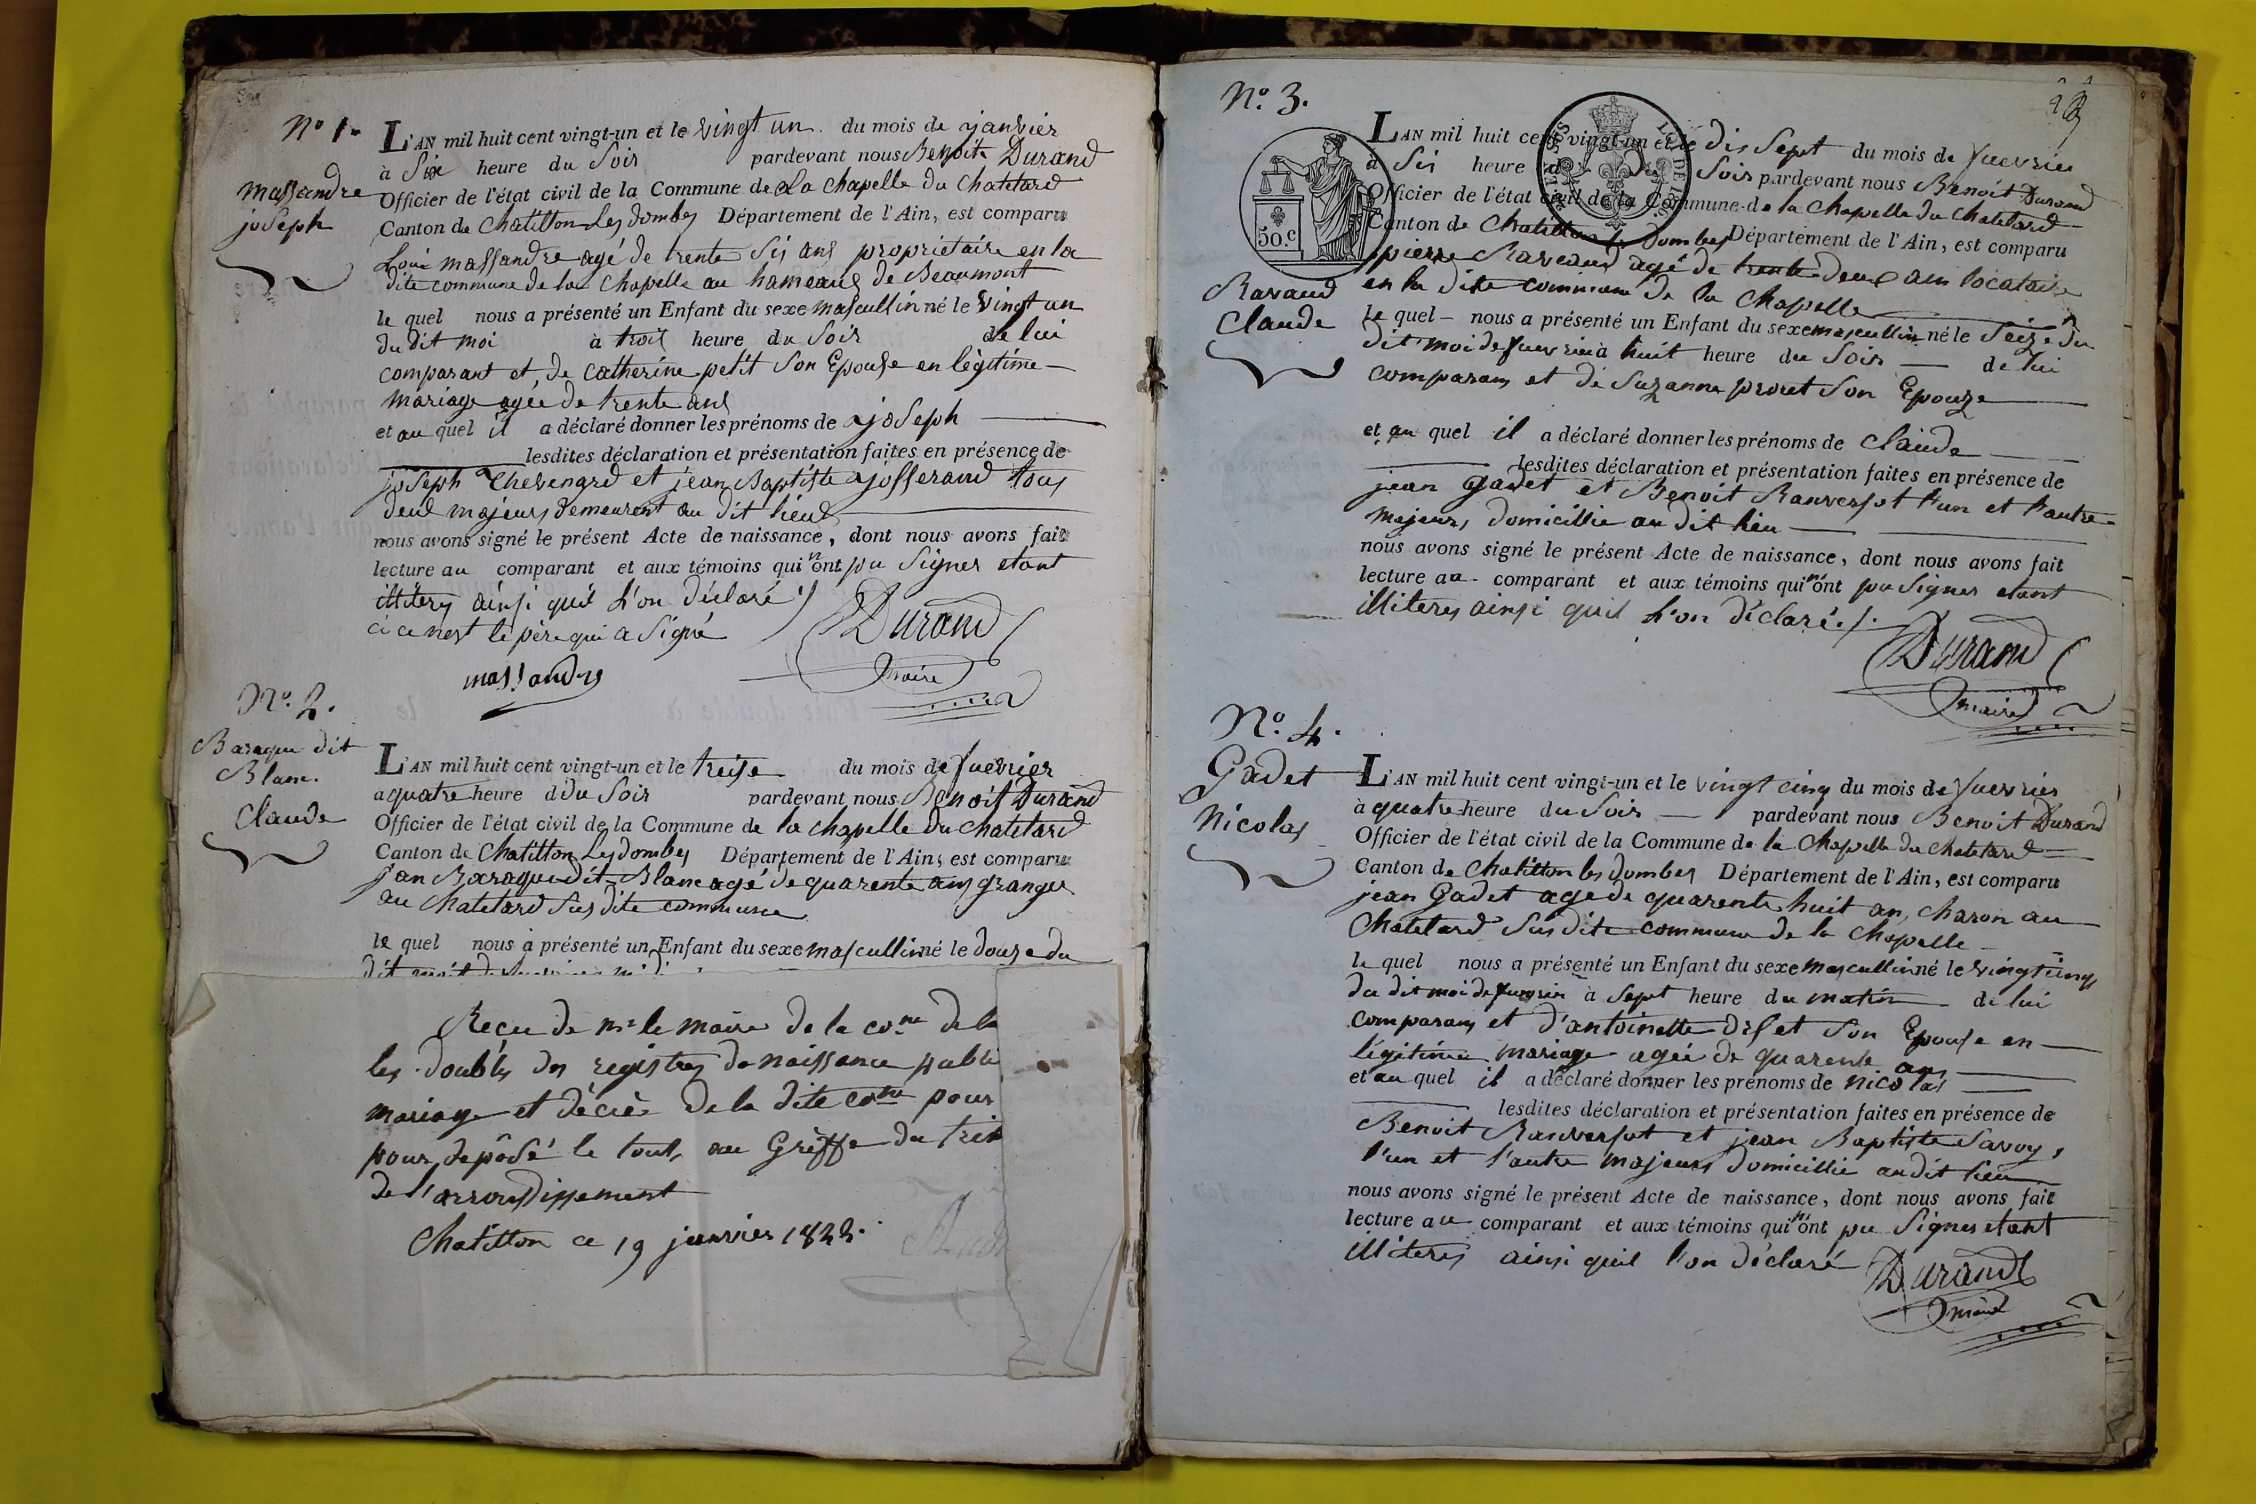 No 1.
massandre
joseph
L'AN mil huit cent vingt-un et le vingt un du mois de janvier
à Six heure du Soir pardevant nous Benoit Durand
Officier de l'état civil de la Commune de La chapelle du Chatelard
Canton de Chatillon Les dombes Département de l'Ain, est comparu
Loui massandre agé de trente Sis ans propriétaire en la
dite commune de la Chapelle au hameaux de Beaumont
le quel nous a présenté un Enfant du sexe mascullin né le vingt un
du dit moi à trois heure du Soir de lui
comparant et de catherine petit Son Epouse en légitime
mariage agée de trente ans
et au quel il a déclaré donner les prénoms de joseph
lesdites déclaration et présentation faites en présence de
joseph Chevenard et jean Baptiste josserand tous
deux majeurs demeurent au dit lieux
nous avons signé le présent Acte de naissance, dont nous avons fait
lecture au comparant et aux témoins qui n'ont pu Signer etant
illiteres ainsi quil l'on déclaré
ci ce nest le père qui a Signé
Durand
maire
massandre
No. 2.
Baraque dit
Blanc.
Claude
L'AN mil huit cent vingt-un et le treise du mois de fuevrier
a quatre heure d Du Soir pardevant nous Benoit Durand
Officier de l'état civil de la Commune de la chapelle du chatelard
Canton de Chatillon Les dombes Département de l'Ain, est comparu
jan Baraque dit Blanc agé de quarente ans granger
au Chatelard Sus dite commune
le quel nous a présenté un Enfant du sexe mascullin né le douze du
Reçu de mr le maire de la cone de la
les doubles des registres de naissance publi
mariage et décès de la dite cone pour
pour déposé le tout au Grèffe du trib
de l'arrondissement
Chatillon ce 19 janvier 1822.
No. 3.
50.c
Ravaud
Claude
L'AN mil huit cent vingt-un et le dis Sept du mois de fuevrier
à Sis heure du Soir pardevant nous Benoit Durand
Officier de l'état civil de la Commune de la Chapelle du Chatelard
Canton de Chatillon les Dombes Département de l'Ain, est comparu
pierre Raveaud agé de trente deux ans locataire
en la dite commune de la Chapelle
le quel nous a présenté un Enfant du sexe mascullin né le Seize du
dit moi de fuevrier à huit heure du Soir de lui
comparans et de Suzanne prout Son Epouze
et au quel il a déclaré donner les prénoms de Claude
lesdites déclaration et présentation faites en présence de
jean Gadet et Benoit Ranversot l'un et l'autre
majeurs, domicillié au dit lieu
nous avons signé le présent Acte de naissance, dont nous avons fait
lecture au comparant et aux témoins qui n'ont pu Signer etant
illiteres ainsi quil l'on déclaré./.
Durand
maire
No. 4.
Gadet
Nicolas
L'AN mil huit cent vingt-un et le vingt cinq du mois de fuevrier
à quatre heure du Soir pardevant nous Benoit Durand
Officier de l'état civil de la Commune de la Chapelle du chatelard
Canton de Chatillon les dombes Département de l'Ain, est comparu
jean Gadet age de quarente huit an, charon au
Chatelard Sus dite commune de la Chapelle
le quel nous a présenté un Enfant du sexe mascullin né le vingt cinq
du dit moi de fuevrier à Sept heure du matin de lui
comparans et d'antoinette Son Epouse en
légitime mariage agée de quarente ans
et au quel il a déclaré donner les prénoms de nicolas
lesdites déclaration et présentation faites en présence de
Benoit Ranversot et jean Baptiste Savoy,
l'un et l'autre majeurs domicillié au dit lieu
nous avons signé le présent Acte de naissance, dont nous avons fait
lecture au comparant et aux témoins qui n'ont pu Signer etant
illiteres ainsi quil l'on déclaré
Durand
maire